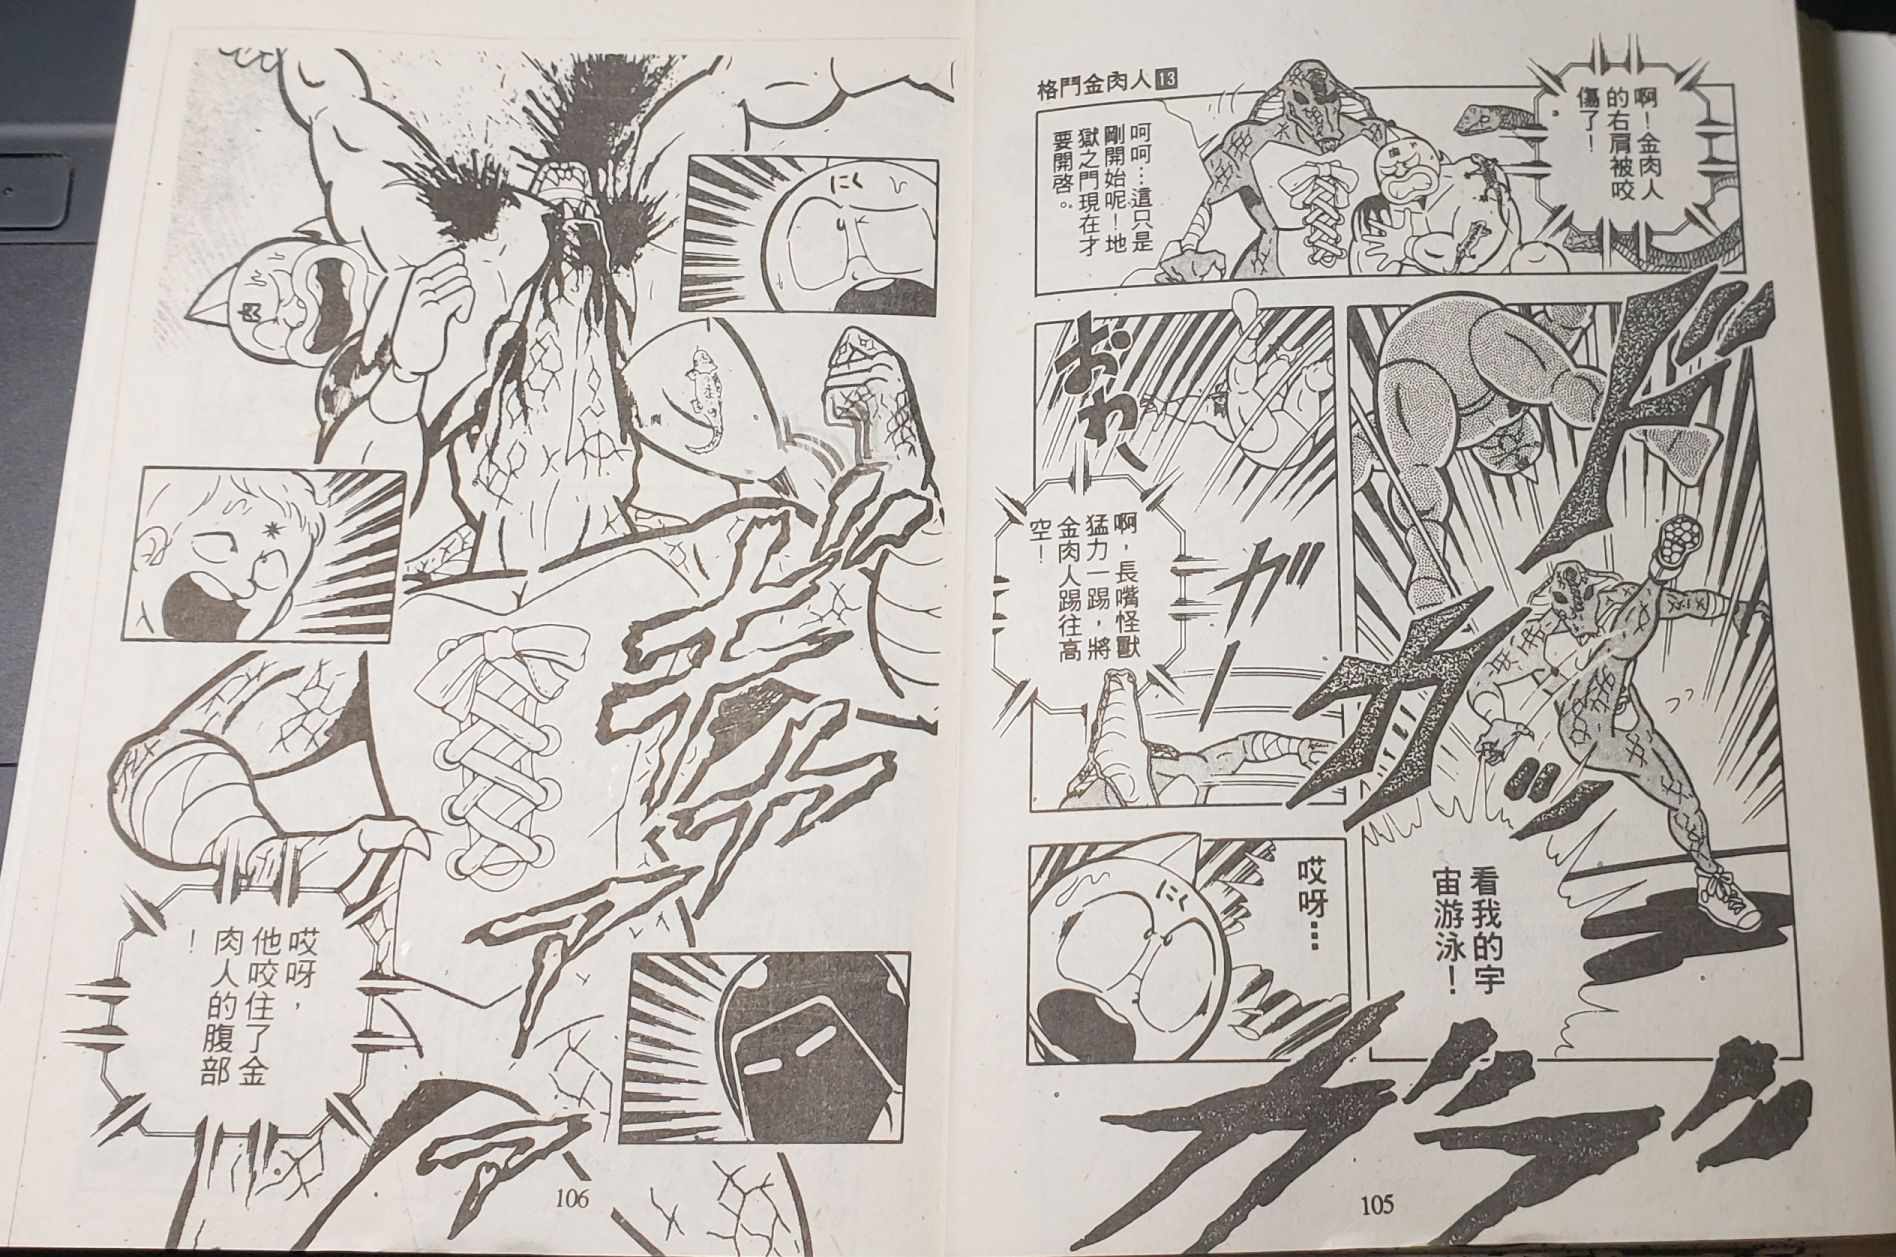 格鬥金肉人13
啊！金肉人
的右肩被咬
傷了！
呵呵…這只是
剛開始呢！地
獄之門現在才
要開啓。
ドガッ
おわ
ガー
啊，長嘴怪獸
猛力一踢，將
金肉人踢往高
空！
看我的宇
宙游泳！
にく
哎呀…
ガブッ
105
にく
肉
哎呀，
他咬住了金
肉人的腹部
！
106